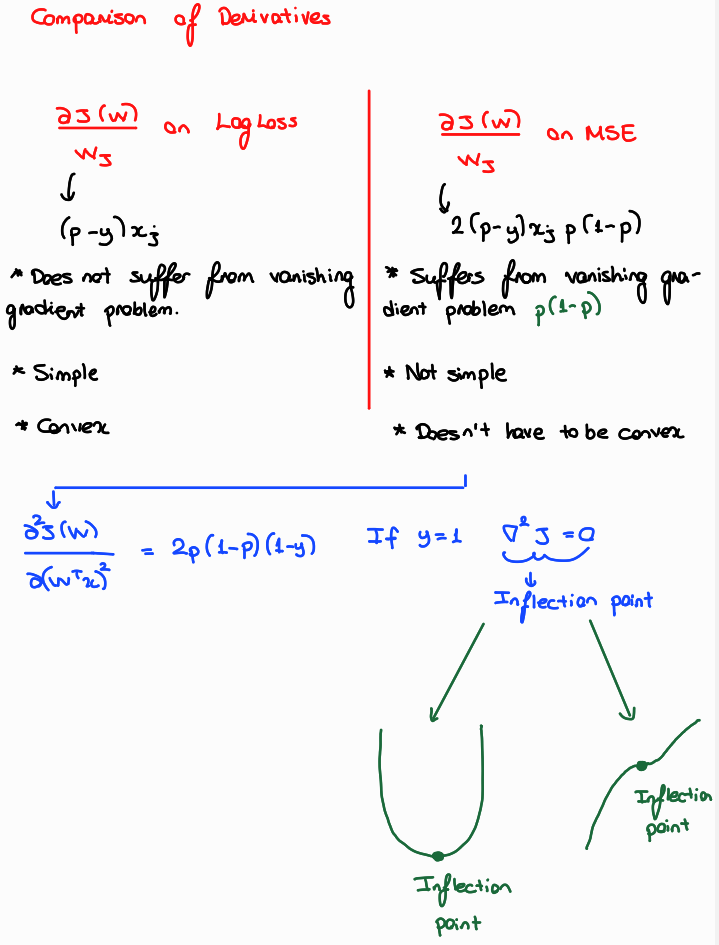 Comparison of Derivatives
∂J(W)/W_J on LogLoss
(p-y)x_j
* Does not suffer from vanishing
gradient problem.
* Simple
* Convex
∂J(W)/W_J on MSE
2(p-y)x_j p(1-p)
* Suffers from vanishing gra-
dient problem p(1-p)
* Not simple
* Doesn't have to be convex
∂²J(W)/∂(Wᵀx)² = 2p(1-p)(1-y) If y=1 ∇²J = 0
Inflection point
Inflection
point
Inflection
point